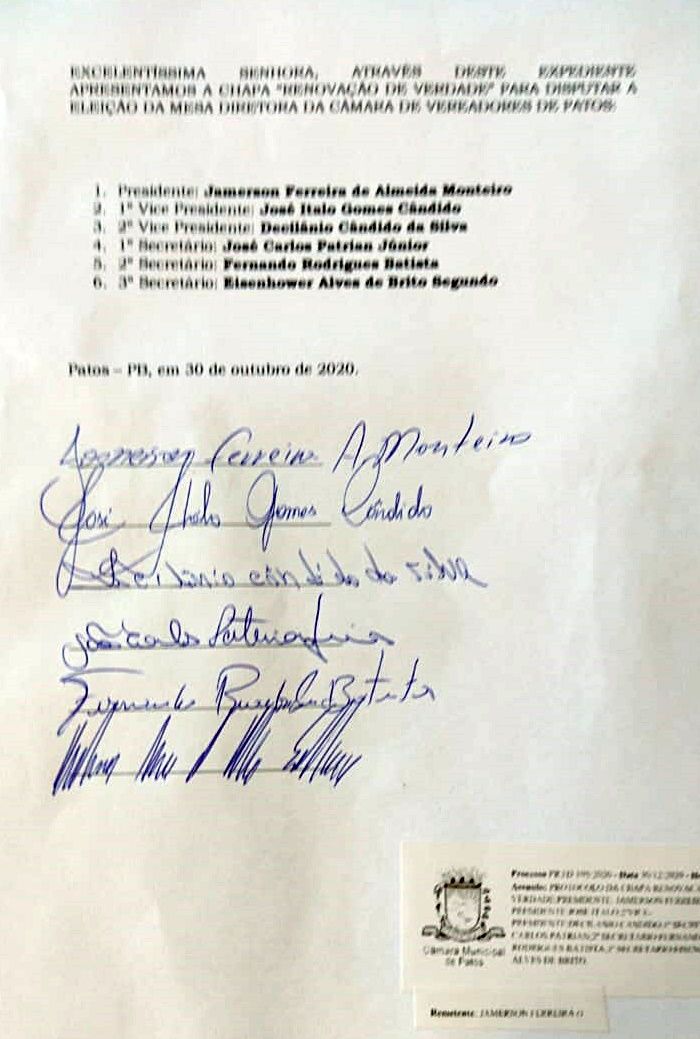 EXCELENTÍSSIMA SENHORA, ATRAVÉS DESTE EXPEDIENTE
APRESENTAMOS A CHAPA "RENOVAÇÃO DE VERDADE" PARA DISPUTAR A
ELEIÇÃO DA MESA DIRETORA DA CÂMARA DE VEREADORES DE PATOS:
1. Presidente: Jamerson Ferreira de Almeida Monteiro
2. 1º Vice Presidente: José Italo Gomes Cândido
3. 2º Vice Presidente: Decilânio Cândido da Silva
4. 1º Secretário: José Carlos Patrian Júnior
5. 2º Secretário: Fernando Rodrigues Batista
6. 3º Secretário: Eisenhower Alves de Brito Segundo
Patos – PB, em 30 de outubro de 2020.
Jamerson Ferreira A. Monteiro
José Italo Gomes Cândido
Decilanio cândido da silva
Fernando Rodrigues Batista
Câmara Municipal
de Patos
Processo Data
Assunto: PROTOCOLO DA CHAPA
VERDADE PRESIDENTE: JAMERSON
PRESIDENTE JOSE ITALO
PRESIDENTE DECILANIO CANDIDO
CARLOS PATRIAN, 2º SECRETARIO
RODRIGUES BATISTA,
ALVES DE BRITO.
Remetente: JAMERSON FERREIRA